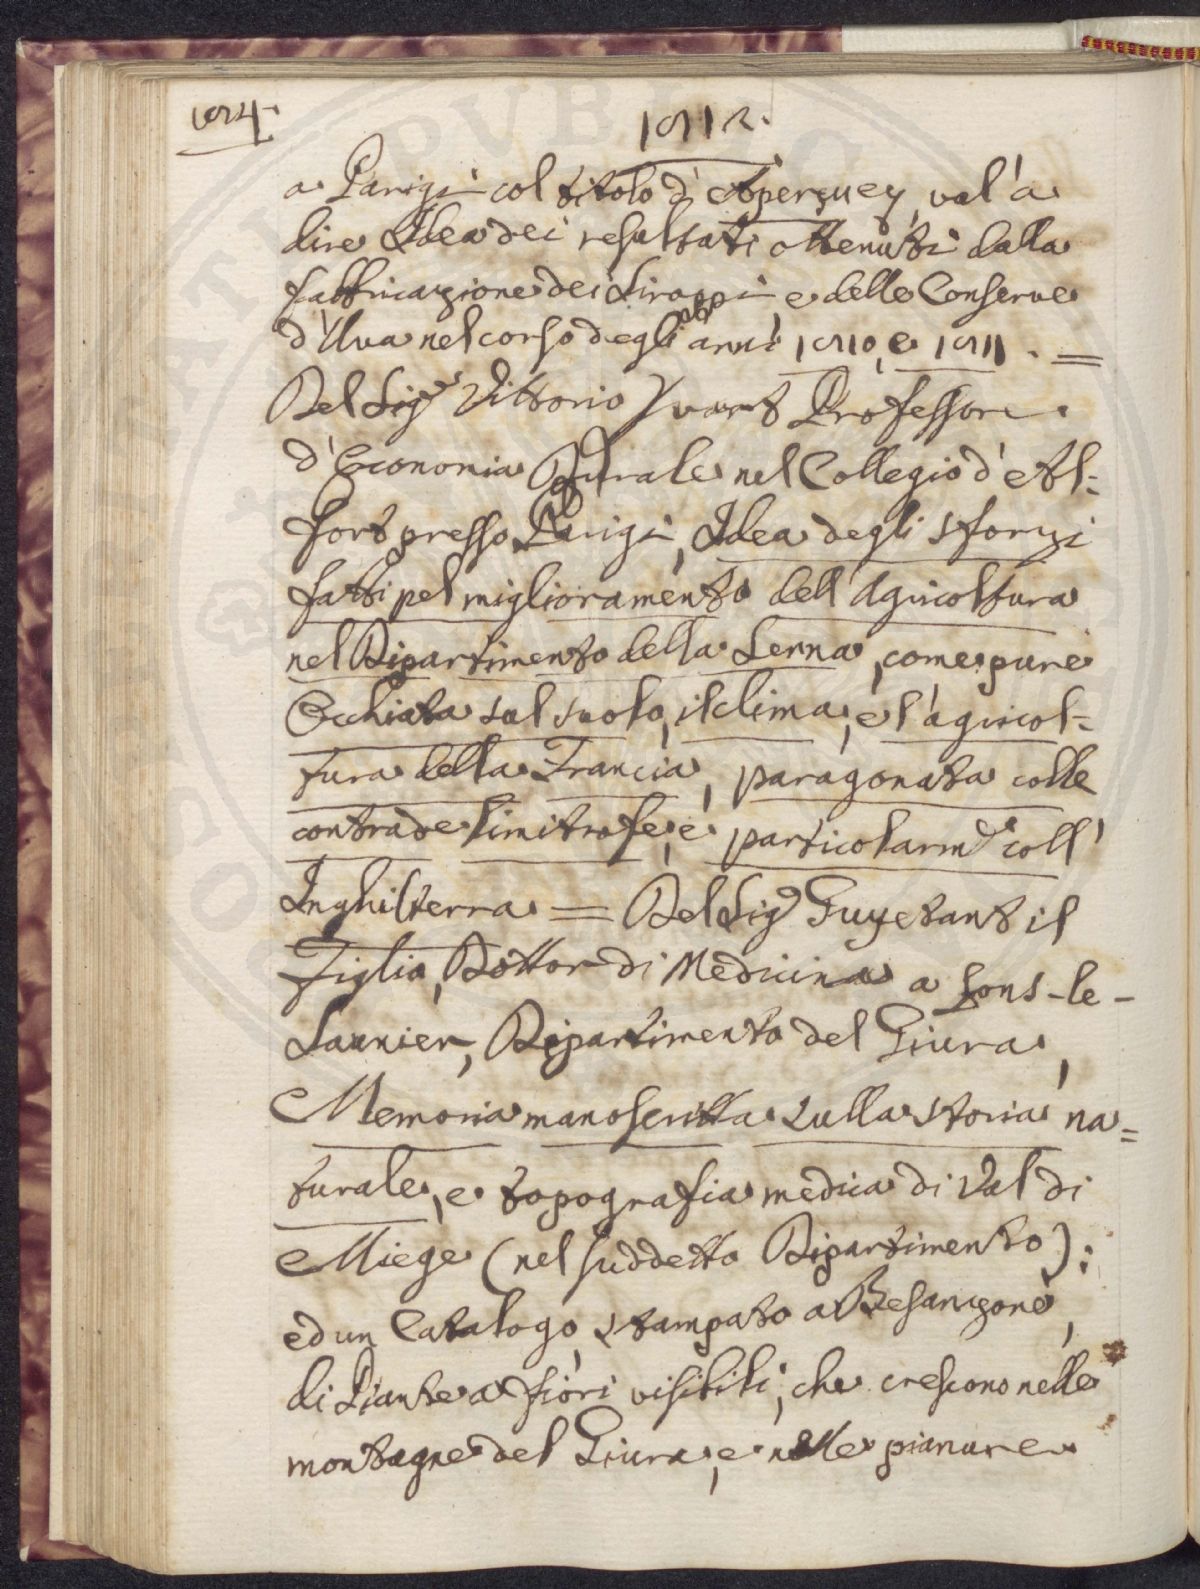 1812.
a Parigi col titolo d'Aperçuey, val'a
dire Idea dei resultati ottenuti dalla
fabbricazione dei Siroppi, e delle Conserve
d'Uva nel corso degli anni 1810, e 1811. =
Del Sigr Vittorio Yvart Professore
d'Economia Rurale nel Collegio d'Al=
fort presso Parigi, Idea degli sforzi
fatti pel miglioramento dell'Agricoltura
nel Dipartimento della Senna, come pure
Occhiata sul suolo, il clima, e l'agricol=
tura della Francia, paragonata colle
contrade limitrofe, e particolarme coll'
Inghilterra = Del Sigr Guyetant il
Figlio, Dottor di Medicina a Lons-le-
Saunier, Dipartimento del Giura,
Memoria manoscritta sulla storia na=
turale, e topografia medica di Val di
Miege (nel suddetto Dipartimento);
ed un Catalogo, stampato a Besanzone,
di Piante a fiori visibili, che crescono nelle
montagne del Giura, e nelle pianure